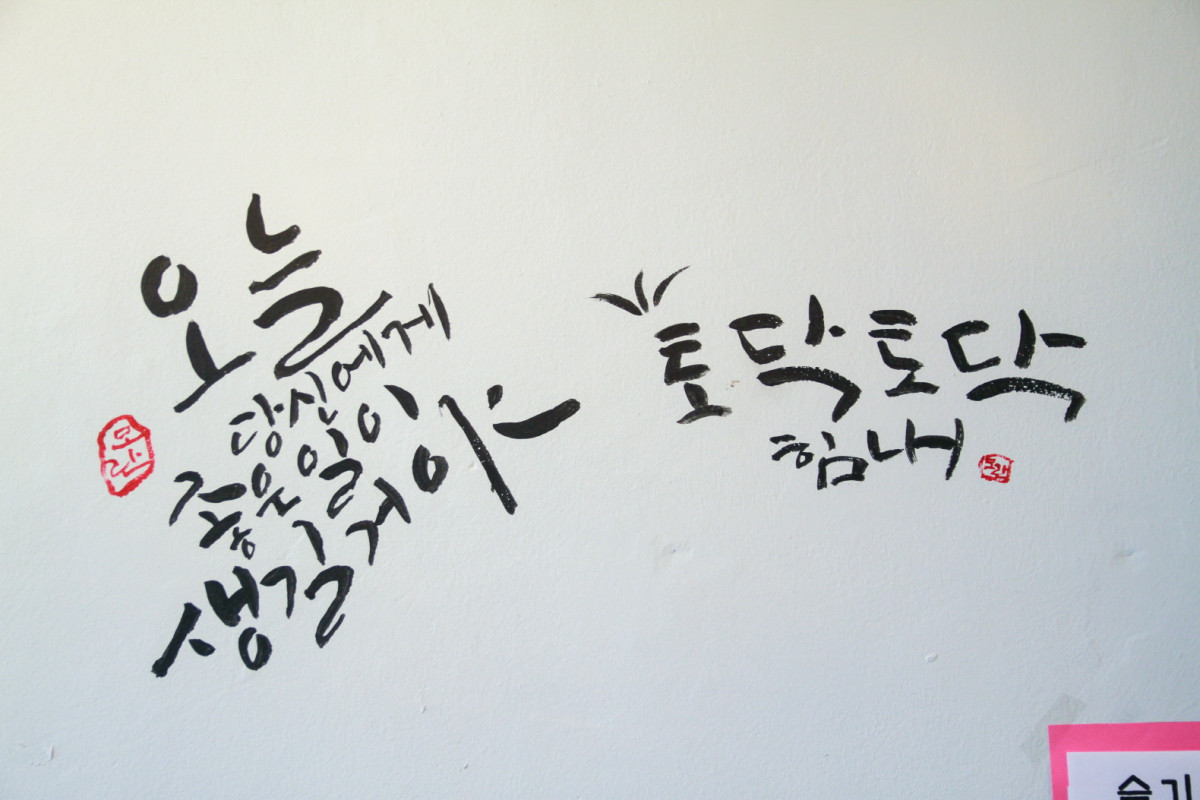 오늘
당신에게
좋은일이
생길거야
토닥토닥
힘내
슬기